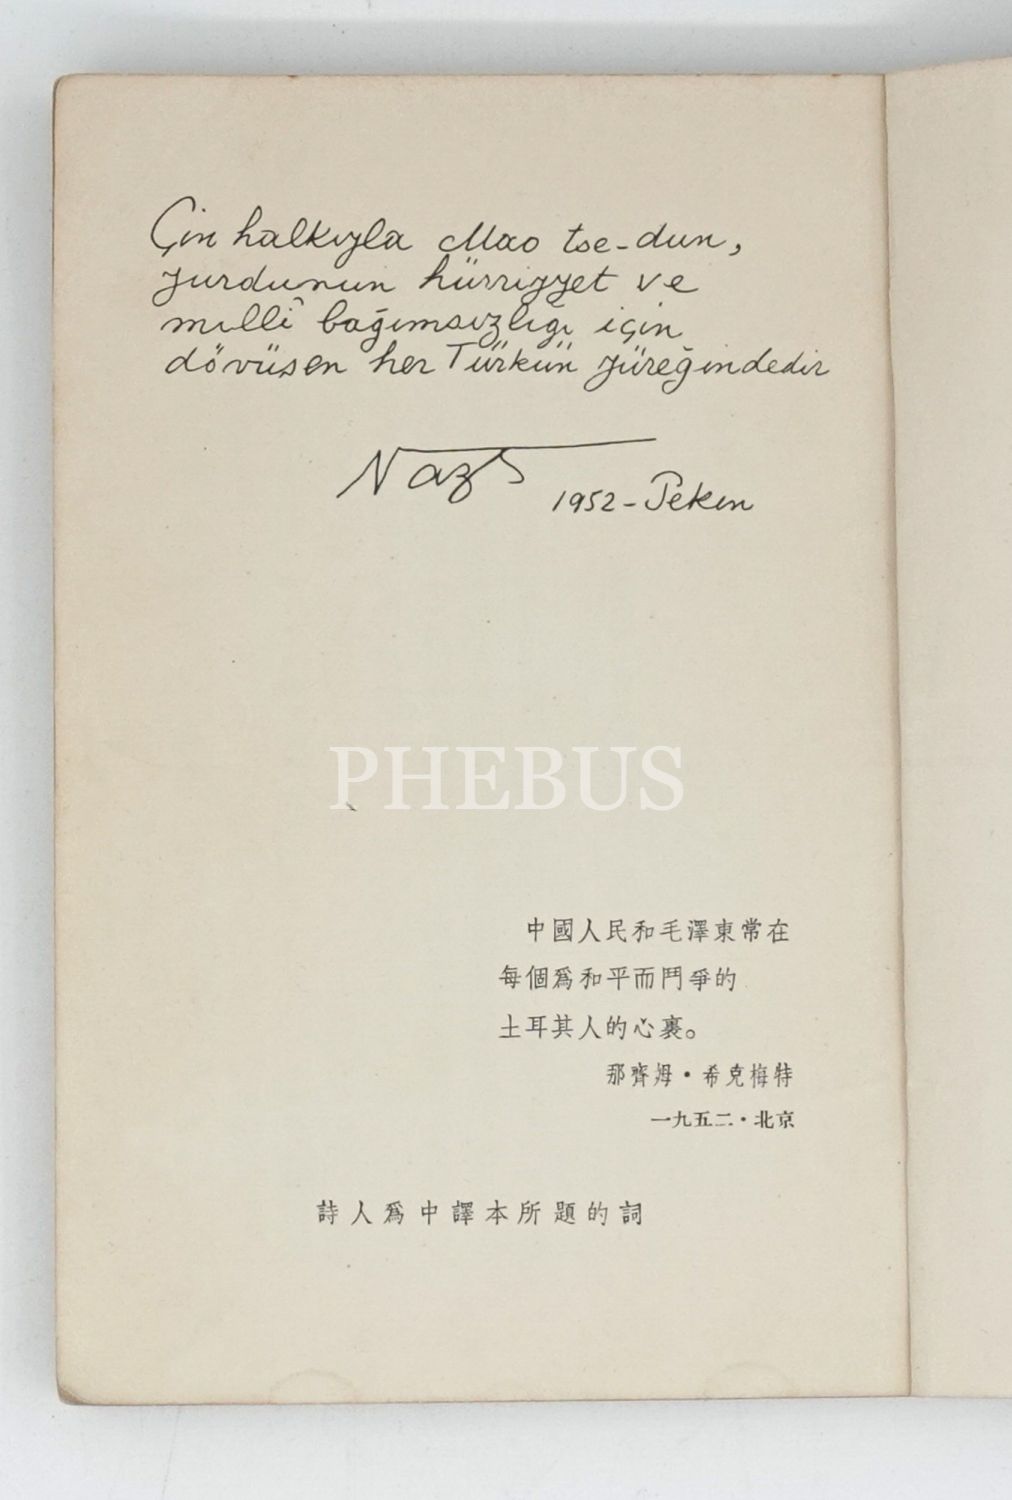 Çin halkıyla Mao tse-dun,
yurdunun hürriyyet ve
millî bağımsızlığı için
dövüşen her Türkün yüreğindedir
Nazım
1952 - Pekin
PHEBUS
中國人民和毛澤東常在
每個爲和平而鬥爭的
土耳其人的心裏。
那齊姆·希克梅特
一九五二·北京
詩人爲中譯本所題的詞